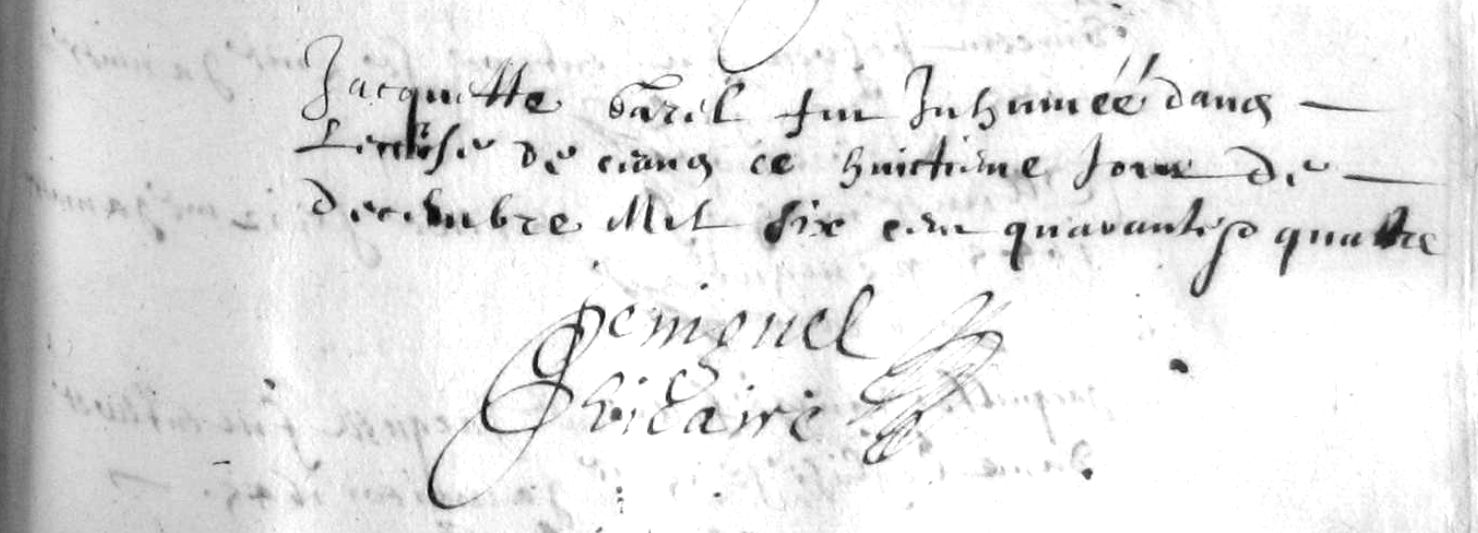 Jacquette Baril fut Inhumée dans
L'eglise de ceans ce huictieme Jour de
decembre Mil six cent quarante quattre
Peniguel
vicaire